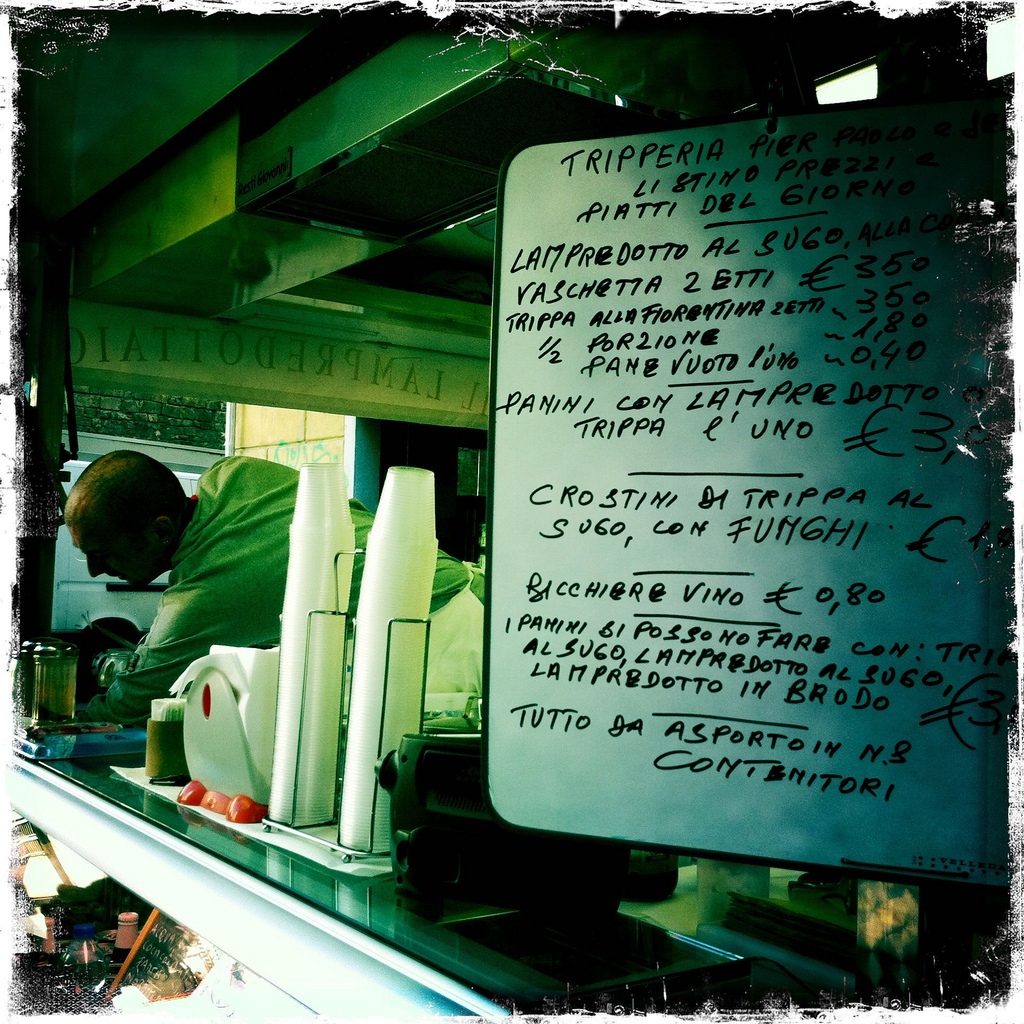 TRIPPERIA PIER PAOLO e
LISTINO PREZZI e
PIATTI DEL GIORNO
LAMPREDOTTO AL SUGO, ALLA
VASCHETTA 2 ETTI € 350
TRIPPA ALLA FIORENTINA 2 ETTI ~ 350
1/2 PORZIONE ~ 1,80
PANE VUOTO l'uno ~ 0,40
PANINI CON LAMPREDOTTO
TRIPPA l'UNO € 3,
CROSTINI DI TRIPPA AL
SUGO, CON FUNGHI €
BICCHIERE VINO € 0,80
I PANINI SI POSSONO FARE CON: TRIP
AL SUGO, LAMPREDOTTO AL SUGO,
LAMPREDOTTO IN BRODO € 3,
TUTTO DA ASPORTO IN N.3
CONTENITORI
VELLEDA
Resti Giovanni
IL LAMPREDOTTAIO